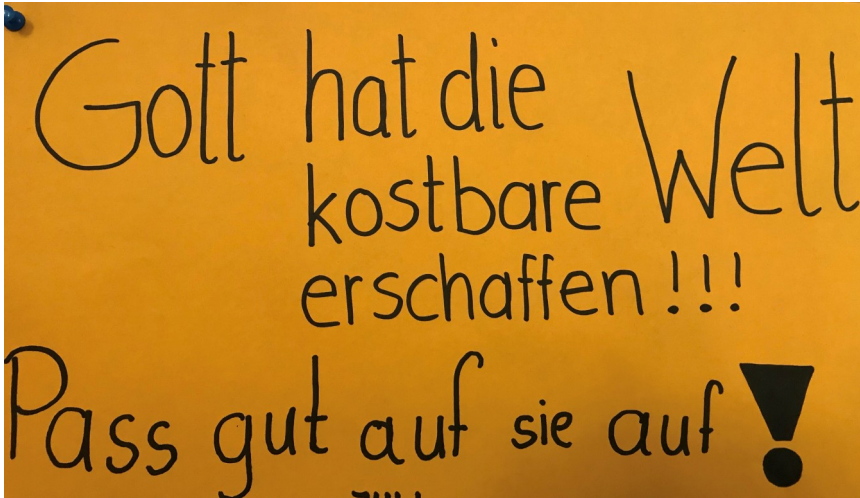 Gott hat die Welt
kostbare
erschaffen!!!
Pass gut auf sie auf!